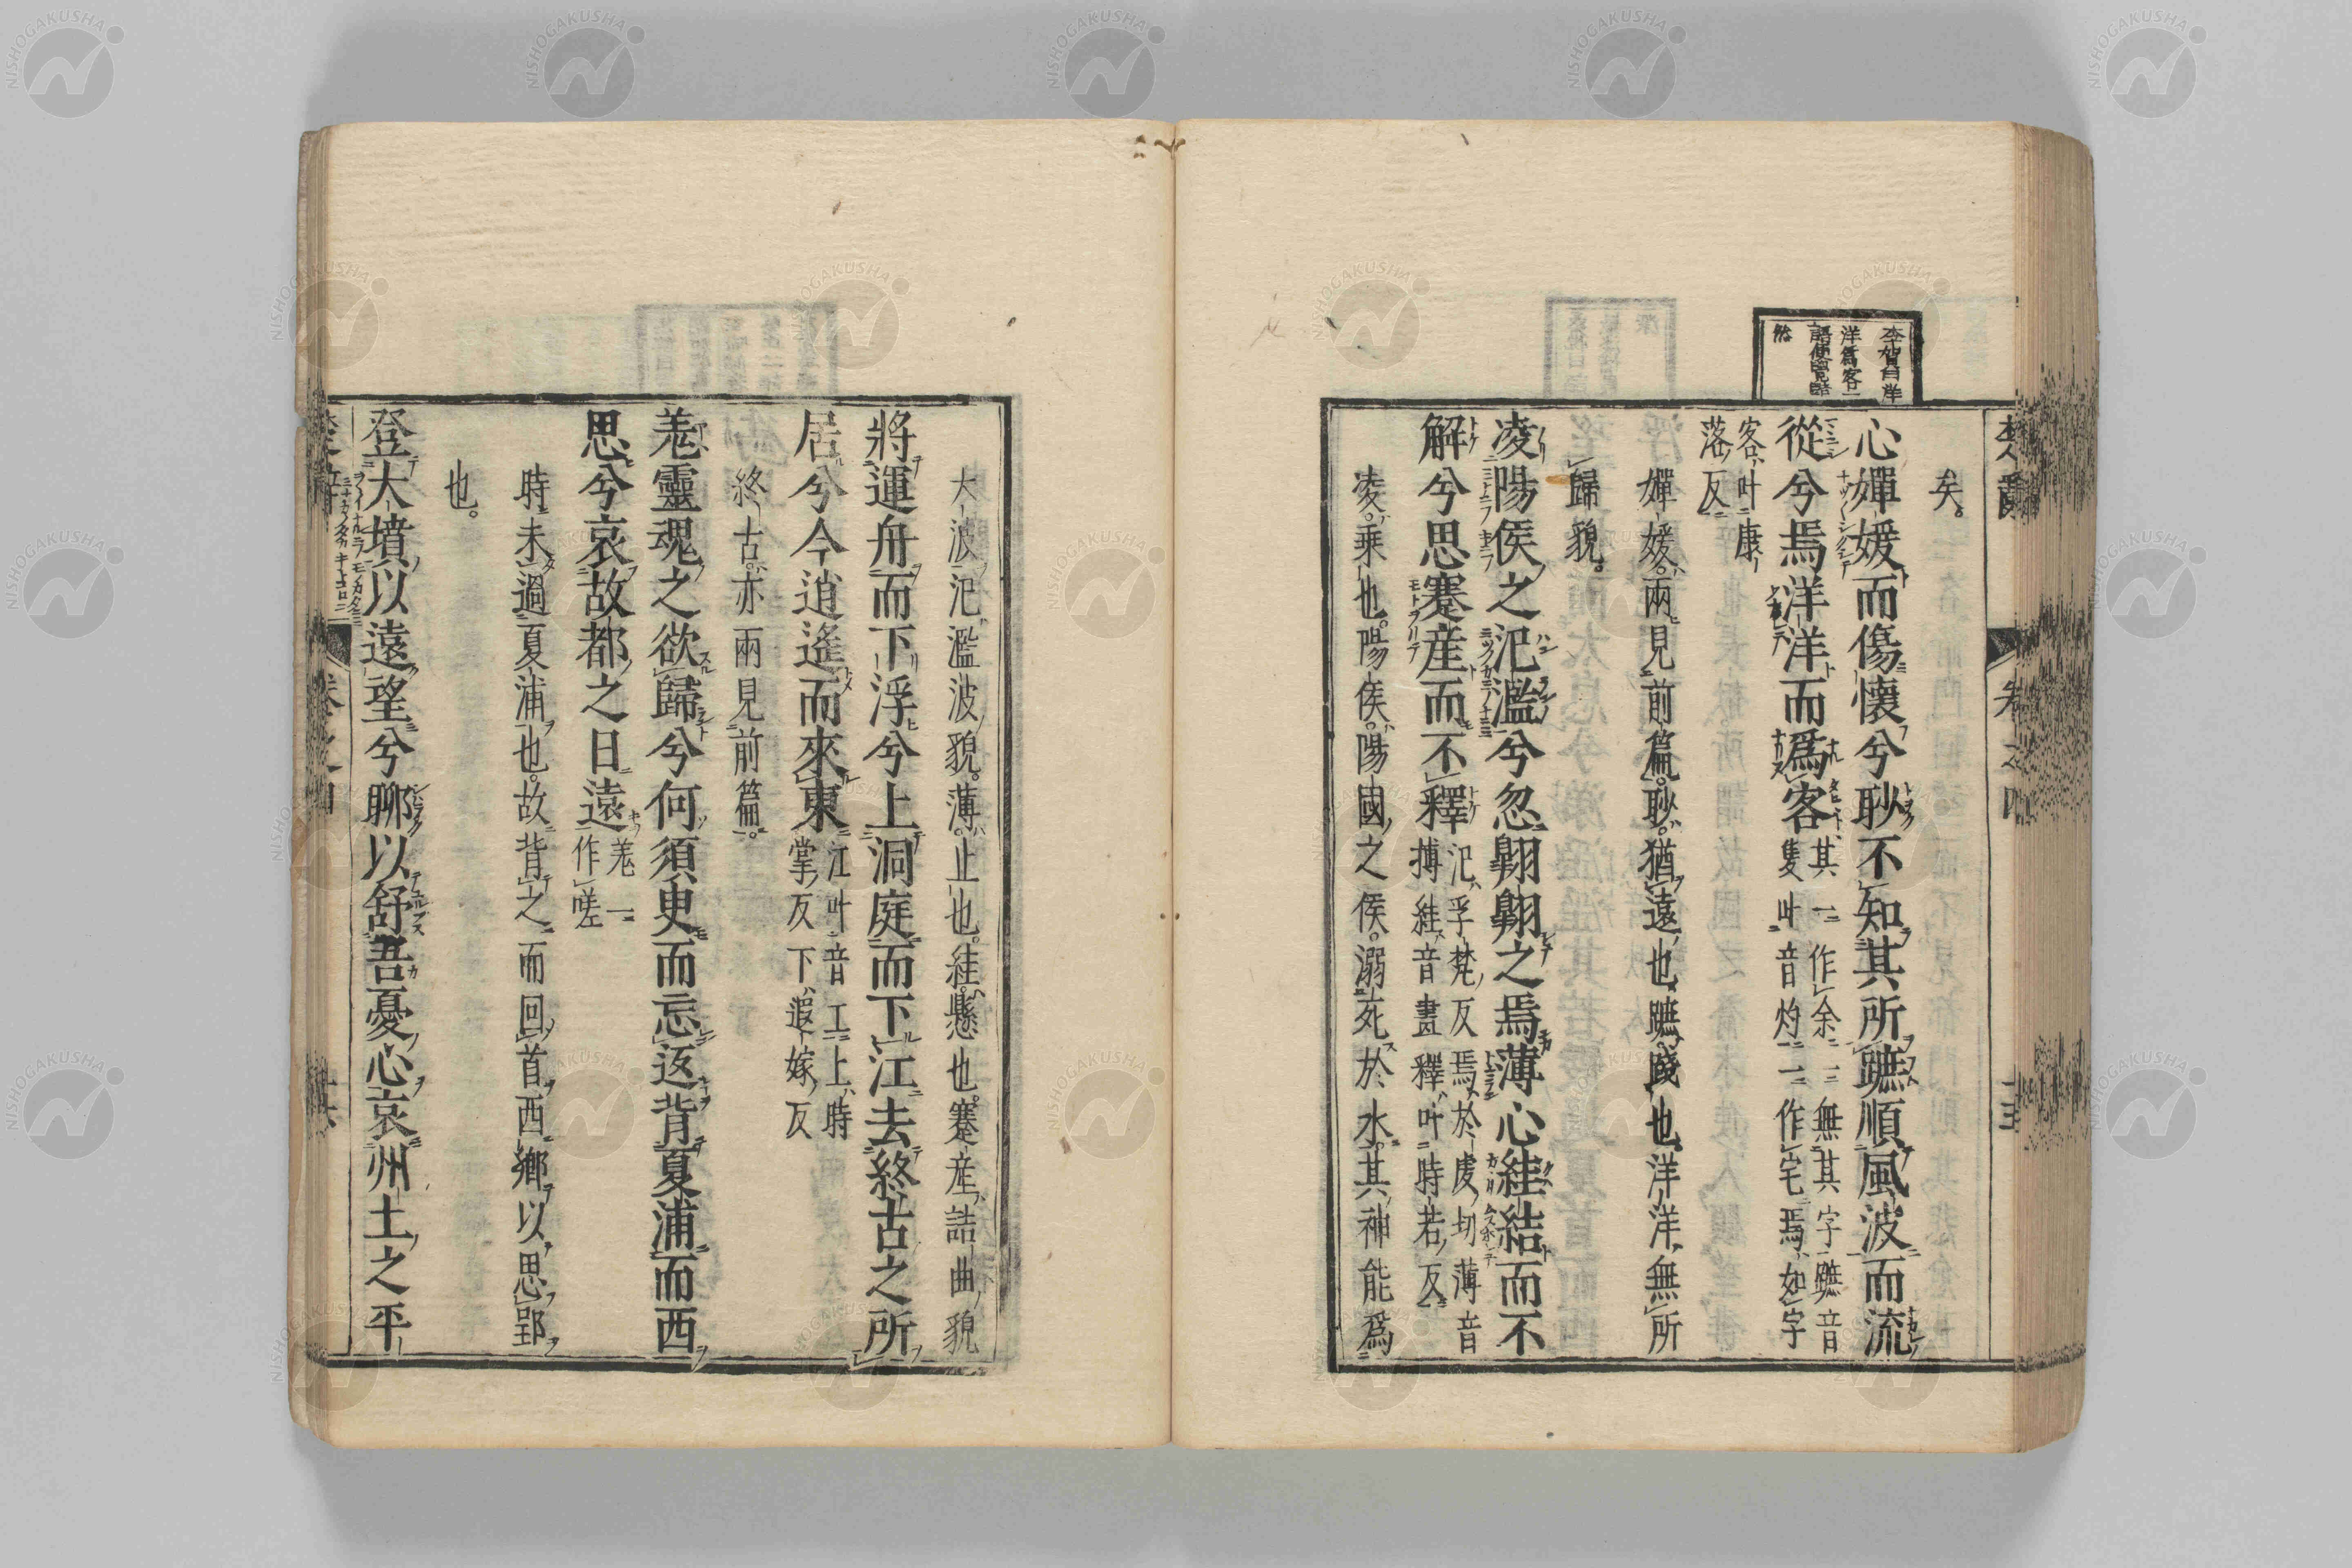 李賀曰洋
洋爲客一
語倍覺黯
然
矣。
心嬋媛而傷懷兮眇不知其所蹠順風波而流
從兮焉洋洋而爲客其一作余一無其字蹠音
隻叶音灼一作宅焉如字
客叶康
落反
嬋媛。兩見前篇。眇。猶遠也。蹠踐也。洋洋無所
歸貌。
凌陽侯之氾濫兮忽翺翔之焉薄心絓結而不
解兮思蹇産而不釋氾孚梵反焉於虔切薄音
搏絓音畫釋叶時若反
凌。乘也。陽侯。陽國之侯。溺死於水。其神能爲
大波氾濫波貌。薄。止也。絓。懸也。蹇産詰曲貌
將運舟而下浮兮上洞庭而下江去終古之所
居兮今逍遙而來東江叶音工上時
掌反下遐嫁反
終古。亦兩見前篇。
羌靈魂之欲歸兮何須臾而忘返背夏浦而西
思兮哀故都之日遠羌一
作嗟
時未過夏浦也。故背之而回首西鄉以思郢
也。
登大墳以遠望兮聊以舒吾憂心哀州土之平
NISHOGAKUSHA